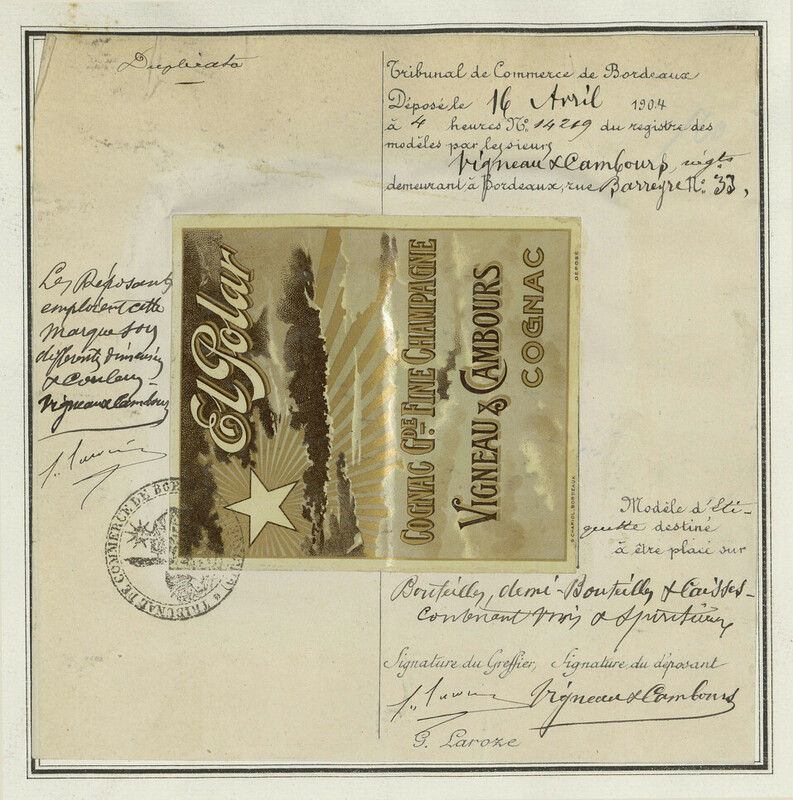 Duplicata
Tribunal de Commerce de Bordeaux
Déposé le 16 Avril 1904
à 4 heures No. 14219 du registre des
modèles par les sieurs
Vigneau & Cambours, négts
demeurant à Bordeaux, rue Barreyre No. 33,
Les Déposants
emploient cette
marque en
différentes dimensions
& couleurs
Vigneau & Cambours
El Polar
COGNAC GDE. FINE CHAMPAGNE
VIGNEAU & CAMBOURS
COGNAC
DÉPOSÉ
G. CHARIOL, BORDEAUX
TRIBUNAL DE COMMERCE DE BOR
Modèle d'Éti-
quette destiné
à être placé sur
Bouteilles, demi-Bouteilles & Caisses
contenant vins & spiritueux
Signature du Greffier, Signature du déposant
Vigneau & Cambours
G. Laroze